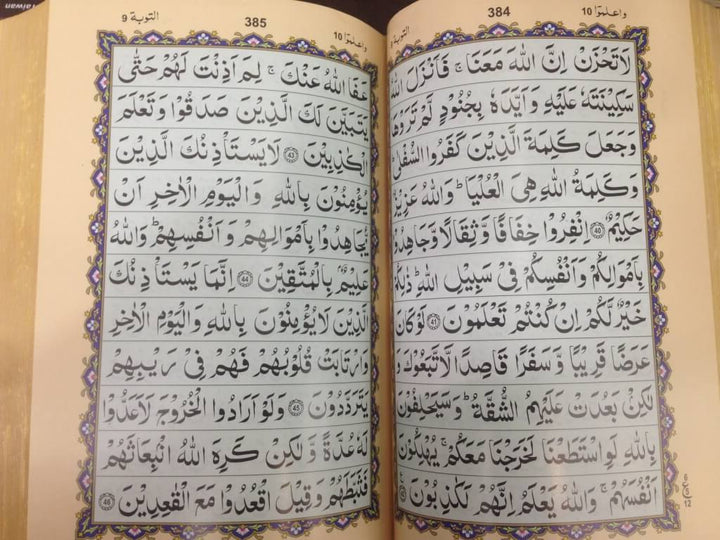 واعلموٓا 10 384 التوبة 9
لَا تَحْزَنْ اِنَّ اللّٰهَ مَعَنَا ۚ فَاَنْزَلَ اللّٰهُ
سَكِيْنَتَهٗ عَلَيْهِ وَاَيَّدَهٗ بِجُنُوْدٍ لَّمْ تَرَوْهَا
وَجَعَلَ كَلِمَةَ الَّذِيْنَ كَفَرُوا السُّفْلٰى ؕ
وَكَلِمَةُ اللّٰهِ هِيَ الْعُلْيَا ؕ وَاللّٰهُ عَزِيْزٌ
حَكِيْمٌ 40 اِنْفِرُوْا خِفَافًا وَّثِقَالًا وَّجَاهِدُوْا
بِاَمْوَالِكُمْ وَاَنْفُسِكُمْ فِيْ سَبِيْلِ اللّٰهِ ؕ ذٰلِكُمْ
خَيْرٌ لَّكُمْ اِنْ كُنْتُمْ تَعْلَمُوْنَ 41 لَوْ كَانَ
عَرَضًا قَرِيْبًا وَّسَفَرًا قَاصِدًا لَّاتَّبَعُوْكَ وَ
لٰكِنْۢ بَعُدَتْ عَلَيْهِمُ الشُّقَّةُ ؕ وَسَيَحْلِفُوْنَ
بِاللّٰهِ لَوِ اسْتَطَعْنَا لَخَرَجْنَا مَعَكُمْ ۚ يُهْلِكُوْنَ
اَنْفُسَهُمْ ۚ وَاللّٰهُ يَعْلَمُ اِنَّهُمْ لَكٰذِبُوْنَ 42
ع
12
واعلموٓا 10 385 التوبة 9
عَفَا اللّٰهُ عَنْكَ ۚ لِمَ اَذِنْتَ لَهُمْ حَتّٰى
يَتَبَيَّنَ لَكَ الَّذِيْنَ صَدَقُوْا وَتَعْلَمَ
الْكٰذِبِيْنَ 43 لَا يَسْتَاْذِنُكَ الَّذِيْنَ
يُؤْمِنُوْنَ بِاللّٰهِ وَالْيَوْمِ الْاٰخِرِ اَنْ
يُّجَاهِدُوْا بِاَمْوَالِهِمْ وَاَنْفُسِهِمْ ؕ وَاللّٰهُ
عَلِيْمٌۢ بِالْمُتَّقِيْنَ 44 اِنَّمَا يَسْتَاْذِنُكَ
الَّذِيْنَ لَا يُؤْمِنُوْنَ بِاللّٰهِ وَالْيَوْمِ الْاٰخِرِ
وَارْتَابَتْ قُلُوْبُهُمْ فَهُمْ فِيْ رَيْبِهِمْ
يَتَرَدَّدُوْنَ 45 وَلَوْ اَرَادُوا الْخُرُوْجَ لَاَعَدُّوْا
لَهٗ عُدَّةً وَّلٰكِنْ كَرِهَ اللّٰهُ انْۢبِعَاثَهُمْ
فَثَبَّطَهُمْ وَقِيْلَ اقْعُدُوْا مَعَ الْقٰعِدِيْنَ 46